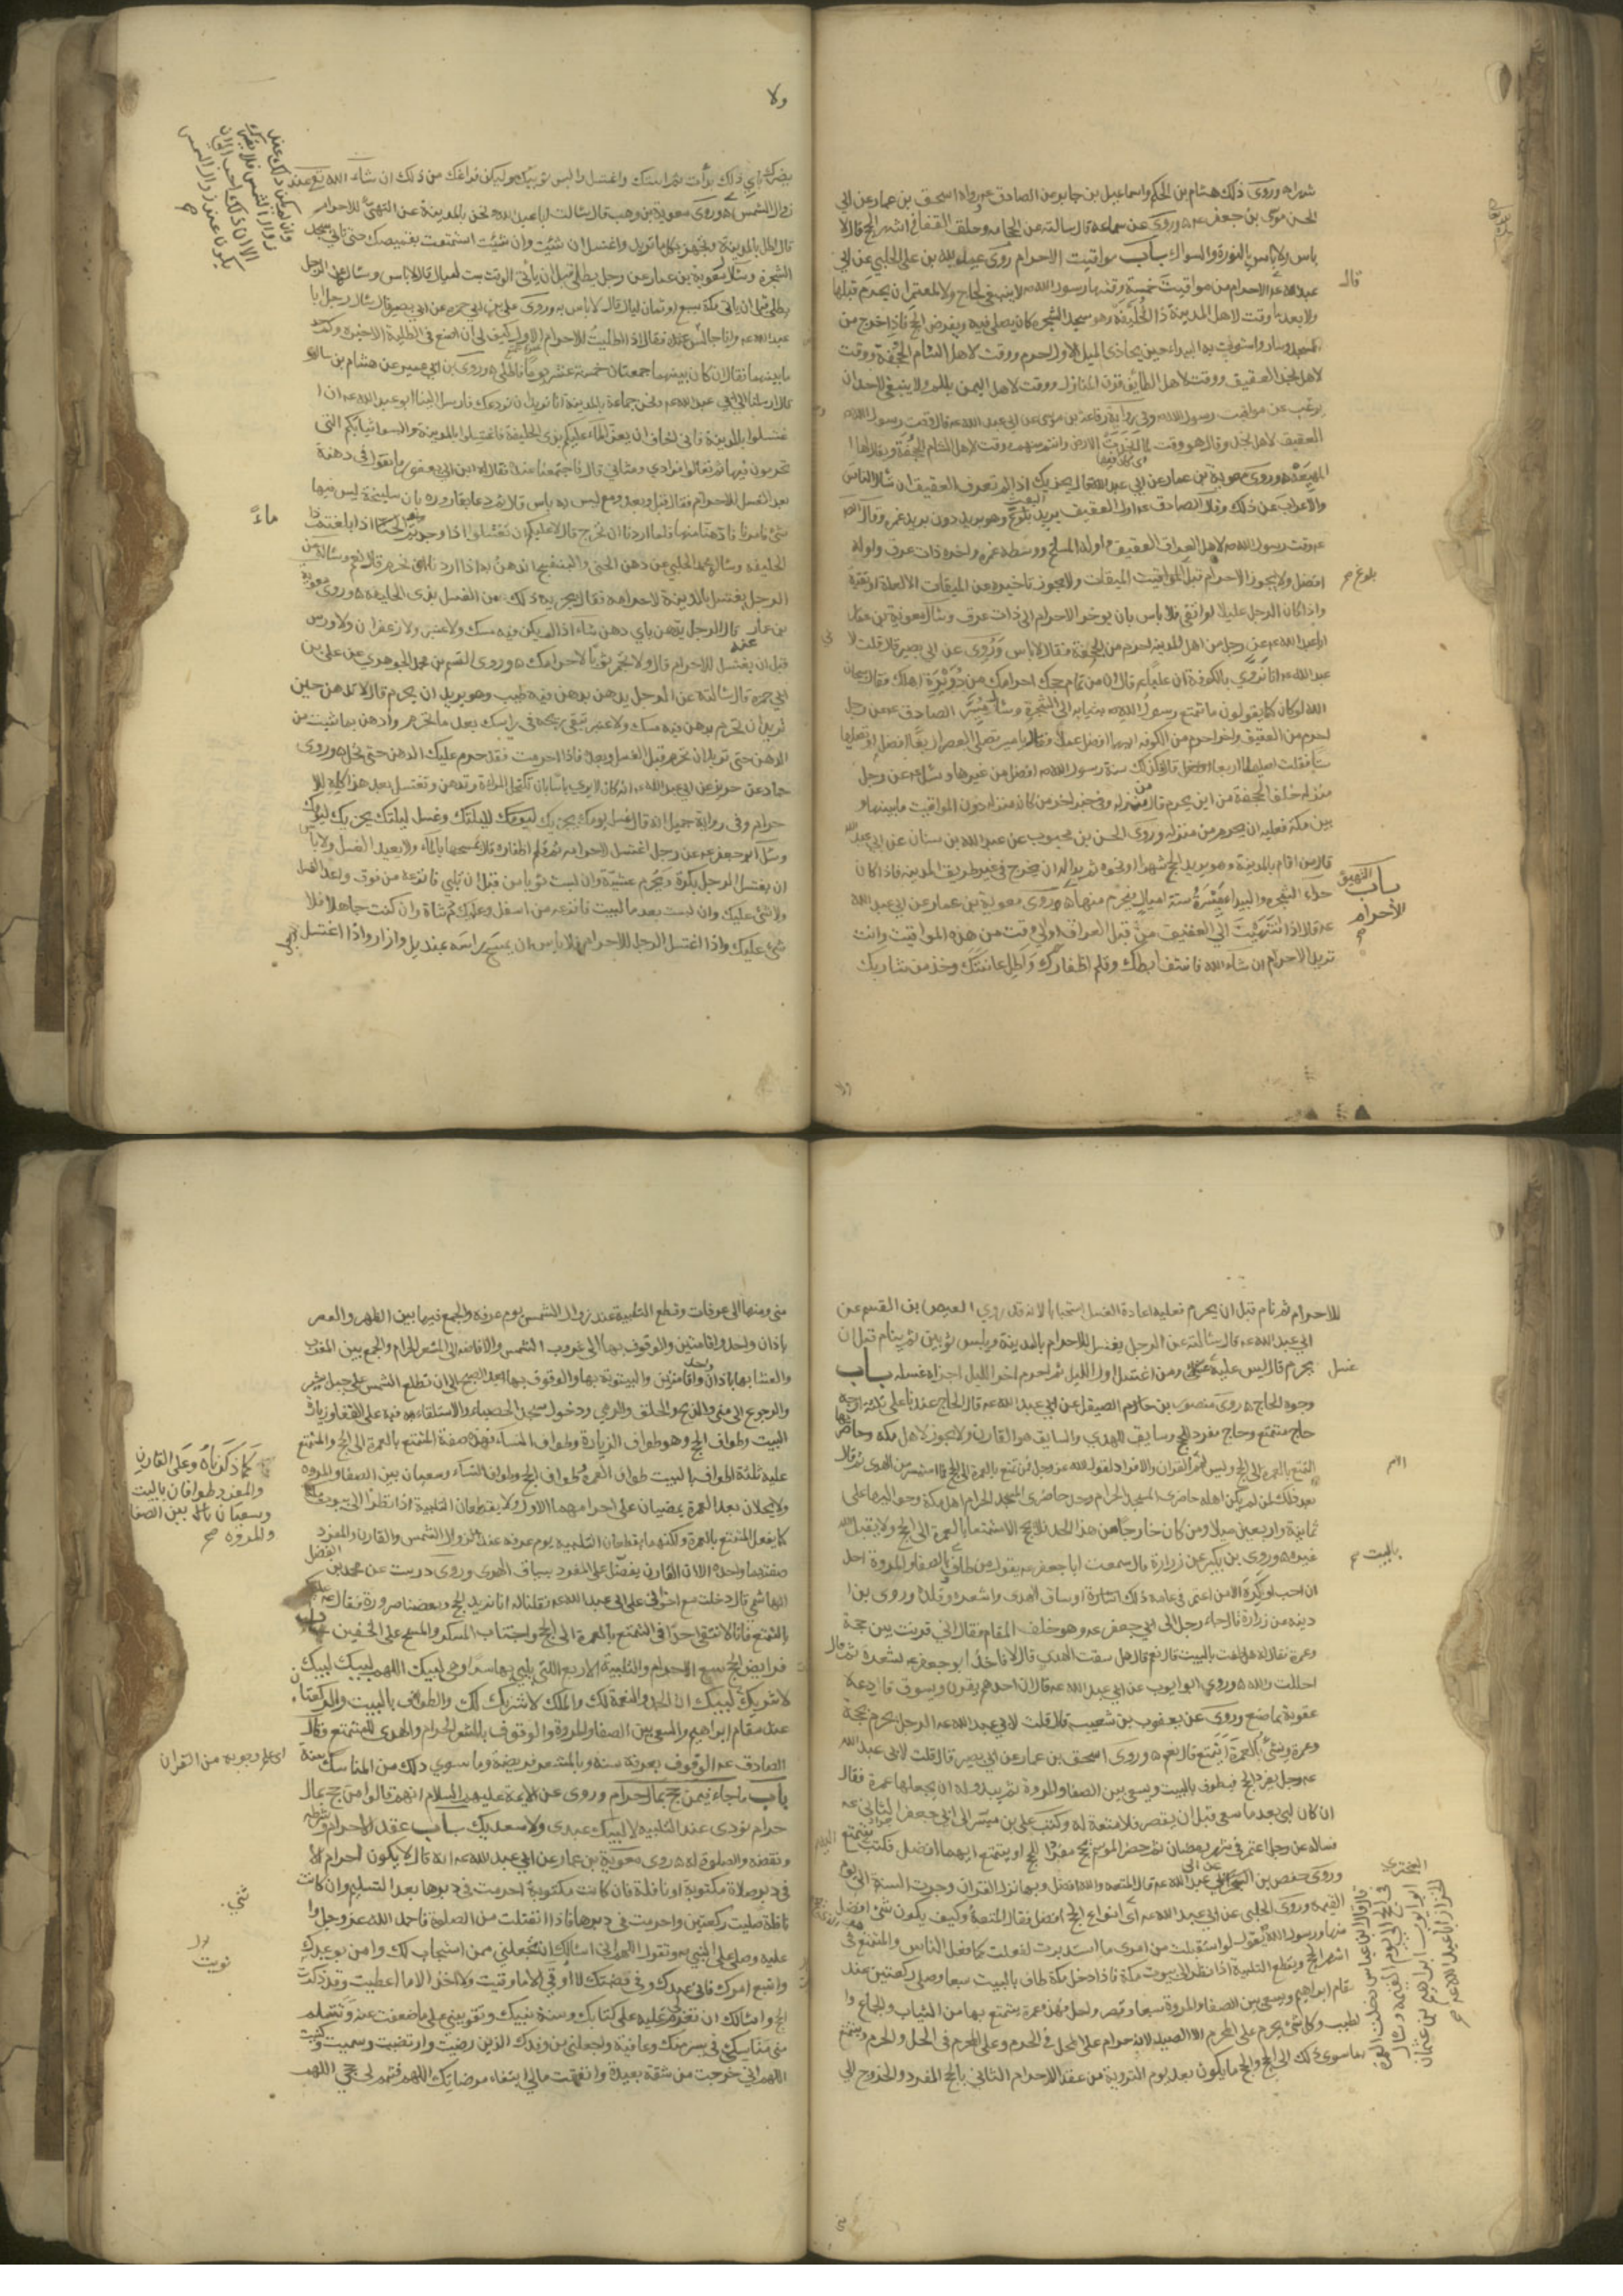 شهرا ه وروى ذلك هشام بن الحكم واسماعيل بن جابر عن الصادق وروى اسحق بن عمار عن ابي
الحسن موسى بن جعفر ه وروى عن سماعة قال سالته عن الحجامة وحلق القفا في اشهر الحج قال لا
باس ولا باس بالنورة والسواك باب مواقيت الاحرام روى عبيد الله بن علي الحلبي عن ابي
عبد الله عم الاحرام من مواقيت خمسة وقتها رسول الله لا ينبغي لحاج ولا لمعتمر ان يحرم قبلها
قال
ولا بعدها وقت لاهل المدينة ذا الحليفة وهو مسجد الشجرة كان يصلي فيه ويفرض الحج فاذا خرج من
المسجد وسار واستوت به البيداء حين يحاذي الميل الاول احرم ووقت لاهل الشام الجحفة ووقت
لاهل نجد العقيق ووقت لاهل الطايف قرن المنازل ووقت لاهل اليمن يلملم ولا ينبغي لاحد ان
يرغب عن مواقيت رسول الله وفي رواية رفاعة بن موسى عن ابي عبد الله عم قال وقت رسول الله
العقيق لاهل نجد وقال هو وقت لما انجدت الارض وانتم منهم ووقت لاهل الشام الجحفة ويقال لها
المهيعة ه وروى معوية بن عمار عن ابي عبد الله قال يجزيك اذا لم تعرف العقيق ان تسال الناس
والاعراب عن ذلك وقال الصادق عم اول العقيق بريد البعث وهو بريد دون بريد غمرة وقال
عم وقت رسول الله لاهل العراق العقيق واوله المسلخ ووسطه غمرة واخره ذات عرق واوله
افضل ولا يجوز الاحرام قبل المواقيت الميقات ولا يجوز تاخيره عن الميقات الا لعلة او تقية
بلوغ صح
واذا كان الرجل عليلا او اتقى فلا باس بان يوخر الاحرام الى ذات عرق وسال معوية بن عمار
ابا عبد الله عم عن رجل من اهل المدينة احرم من الجحفة فقال لا باس وروى عن ابي بصير قال قلت لابي
عبد الله عم انا نروى بالكوفة ان عليا عم قال ان من تمام حجك احرامك من دويرة اهلك فقال سبحان
الله لو كان كما يقولون ما تمتع رسول الله بثيابه الى الشجرة وسال ميسر الصادق عم عن رجل
احرم من العقيق واخر احرم من الكوفة ايهما افضل عملا فقال يا ميسر تصلي العصر اربعا افضل او تصليها
ستا فقلت اصليها اربعا افضل قال فكذلك سنة رسول الله افضل من غيرها وسئل عم عن رجل
منزله خلف الجحفة من اين يحرم قال من منزله وفي خبر اخر من كان منزله دون المواقيت ما بينها و
بين مكة فعليه ان يحرم من منزله وروى الحسن بن محبوب عن عبد الله بن سنان عن ابي عبد الله
قال من اقام بالمدينة وهو يريد الحج شهرا او نحوه ثم بدا له ان يخرج في غير طريق المدينة فاذا كان
حذاء الشجرة والبيداء مسيرة ستة اميال فيحرم منها ه وروى معوية بن عمار عن ابي عبد الله
باب التهيؤ
للاحرام صح
عم قال اذا انتهيت الى العقيق من قبل العراق او الى وقت من هذه المواقيت وانت
تريد الاحرام ان شاء الله فانتف ابطك وقلم اظفارك واطل عانتك وخذ من شاربك
ولا
يضرك باي ذلك بدأت ثم استك واغتسل والبس ثوبيك وليكن فراغك من ذلك ان شاء الله تع عند
وان لم يكن ذلك عند
زوال الشمس فلا يضرك
الا ان ذلك احب الي ان
يكون عند زوال الشمس
صح
زوال الشمس ه وروى معوية بن وهب قال سالت ابا عبد الله ونحن بالمدينة عن التهيؤ للاحرام
قال اطل بالمدينة وتجهز بكل ما تريد واغتسل ان شئت وان شئت استمتعت بقميصك حتى تاتي مسجد
الشجرة وسال معوية بن عمار عن رجل يطلي قبل ان ياتي الوقت بست ليال قال لا باس وسال عن الرجل
يطلي قبل ان ياتي مكة بسبع او ثمان ليال قال لا باس به وروى علي بن ابي حمزة عن ابي بصير قال سال رجل ابا
عبد الله عم وانا جالس عنده فقال اذا اطليت للاحرام الاول كيف لي ان اصنع في الطلية الاخيرة وكم
ما بينهما فقال ان كان بينهما جمعتان خمسة عشر يوما فاطل ه وروى ابن ابي عمير عن هشام بن سالم
قال ارسلنا الى ابي عبد الله عم ونحن جماعة بالمدينة انا نريد ان نودعك فارسل الينا ابو عبد الله عم ان ا
غتسلوا بالمدينة فاني اخاف ان يعز الماء عليكم بذي الحليفة فاغتسلوا بالمدينة والبسوا ثيابكم التي
تحرمون فيها ثم تعالوا فرادى ومثاني قال فاجتمعنا عنده فقال له ابن ابي يعفور ما تقول في دهنة
بعد الغسل للاحرام فقال قبل وبعد ومع ليس به باس قال ثم دعا بقارورة بان سليخة ليس فيها
شئ فامرنا فادهنا منها فلما اردنا ان نخرج قال لا عليكم ان تغتسلوا اذا وجدتم ماء اذا بلغتم ذا
ماء
الحليفة وساله محمد الحلبي عن دهن الحنى والبنفسج اندهن به اذا اردنا ان نحرم قال نعم وساله عن
الرجل يغتسل بالمدينة لاحرامه فقال يجزيه ذلك من الغسل بذي الحليفة ه وروى معوية
بن عمار قال الرجل يدهن باي دهن شاء اذا لم يكن فيه مسك ولا عنبر ولا زعفران ولا ورس
قبل ان يغتسل للاحرام قال ولا تجمر ثوبا لاحرامك ه وروى القسم بن محمد الجوهري عن علي بن
ابي حمزة قال سالته عن الرجل يدهن بدهن فيه طيب وهو يريد ان يحرم قال لا تدهن حين
تريد ان تحرم بدهن فيه مسك ولا عنبر تبقى ريحه في راسك بعد ما تحرم وادهن بما شئت من
الدهن حتى تريد ان تحرم قبل الغسل وبعده فاذا احرمت فقد حرم عليك الدهن حتى تحل ه وروى
حماد عن حريز عن ابي عبد الله عم انه كان لا يرى باسا بان تكتحل المراة وتدهن وتغتسل بعد هذا كله للا
حرام وفي رواية جميل انه قال غسل يومك يجزيك لليلتك وغسل ليلتك يجزيك ليومك
وسئل ابو جعفر عم عن رجل اغتسل لاحرامه ثم قلم اظفاره قال يمسحها بالماء ولا يعيد الغسل ولا باس
ان يغتسل الرجل بكرة ويحرم عشية وان لبست ثوبا من قبل ان تلبي فانزعه من فوق واعد الغسل
ولا شئ عليك وان لبست بعد ما لبيت فانزعه من اسفل وعليك دم شاة وان كنت جاهلا فلا
شئ عليك واذا اغتسل الرجل للاحرام فلا باس ان يمسح راسه بمنديل وازار واذا اغتسل
للاحرام ثم نام قبل ان يحرم فعليه اعادة الغسل استحبابا لانه قد روى العيص بن القسم عن
ابي عبد الله عم قال سالته عن الرجل يغتسل للاحرام بالمدينة ويلبس ثوبين ثم ينام قبل ان
يحرم قال ليس عليه غسل ومن اغتسل اول الليل ثم احرم اخر الليل اجزاه غسله باب
غسل
وجوه الحاج ه روى منصور بن حازم الصيقل عن ابي عبد الله عم قال الحاج عندنا على ثلثة اوجه
حاج متمتع وحاج مفرد للحج وسايق للهدي والسايق هو القارن ولا يجوز لاهل مكة وحاضريها
التمتع بالعمرة الى الحج وليس لهم الا القران والافراد لقول الله عز وجل فمن تمتع بالعمرة الى الحج فما استيسر من الهدي ثم قال
بعد ذلك لمن لم يكن اهله حاضري المسجد الحرام وحد حاضري المسجد الحرام اهل مكة وحواليها على
ثمانية واربعين ميلا ومن كان خارجا من هذا الحد فلا يحج الا متمتعا بالعمرة الى الحج ولا يقبل الله
غيره ه وروى بن بكير عن زرارة قال سمعت ابا جعفر عم يقول من طاف بالصفا والمروة احل
بالبيت صح
ان احب او كره الا من اعتمر في عامه ذلك او ساق الهدي واشعره وقلده وروى بن
دينه عن زرارة قال جاء رجل الى ابي جعفر عم وهو خلف المقام فقال اني قرنت بين حجة
وعمرة فقال له هل طفت بالبيت قال نعم قال هل سقت الهدي قال لا فاخذ ابو جعفر بشعره ثم قال
احللت والله ه وروى ابو ايوب عن ابي عبد الله عم قال ان احدهم يقرن ويسوق فادعه
عقوبة بما صنع وروى عن يعقوب بن شعيب قال قلت لابي عبد الله عم الرجل يحرم بحجة
وعمرة وينشئ العمرة ايتمتع قال نعم ه وروى اسحق بن عمار عن ابي بصير قال قلت لابي عبد الله
عم رجل يفرد الحج فيطوف بالبيت ويسعى بين الصفا والمروة ثم يبدو له ان يجعلها عمرة فقال
ان كان لبى بعد ما سعى قبل ان يقصر فلا متعة له وكتب علي بن ميسر الى ابي جعفر الثاني عم
يساله عن رجل اعتمر في شهر رمضان ثم حضر الموسم يحج مفردا للحج او يتمتع ايهما افضل فكتب يتمتع
وروى حفص بن البختري عن ابي عبد الله عم قال المتعة والله افضل وبها نزل القران وجرت السنة الى يوم
القيمة وروى الحلبي عن ابي عبد الله عم اي انواع الحج افضل فقال المتعة وكيف يكون شئ افضل
منها ورسول الله يقول لو استقبلت من امري ما استدبرت لفعلت كما فعل الناس والمتمتع في
اشهر الحج ويقطع التلبية اذا نظر الى بيوت مكة فاذا دخل مكة طاف بالبيت سبعا وصلى ركعتين عند
مقام ابراهيم ويسعى بين الصفا والمروة سبعا وقصر واحل فهذه عمرة يتمتع بها من الثياب والجماع وا
لطيب وكل شئ يحرم على المحرم الا الصيد لانه حرام على المحل في الحرم وعلى المحرم في الحل والحرم ويتمتع
بما سوى ذلك الى الحج والحج ما يكون بعد يوم التروية من عقد الاحرام الثاني بالحج المفرد والخروج الى
البختري
قال وقال ابن عباس دخلت العمرة
في الحج الى يوم القيمة وسال
ابو ايوب ابراهيم بن عثمان
الخزاز ابا عبد الله عم صح
منى ومنها الى عرفات وقطع التلبية عند زوال الشمس يوم عرفة والجمع فيها بين الظهر والعصر
باذان واحد واقامتين والوقوف بها الى غروب الشمس والافاضة الى المشعر الحرام والجمع بين المغرب
والعشاء بها باذان واحد واقامتين والبيتوتة بها والوقوف بها بعد الصبح الى ان تطلع الشمس على جبل ثبير
والرجوع الى منى والذبح والحلق والرمي ودخول مسجد الحصباء والاستلقاء فيه على القفا وزيارة
البيت وطواف الحج وهو طواف الزيارة وطواف النساء فهذه صفة المتمتع بالعمرة الى الحج والمتمتع
عليه ثلثة اطواف بالبيت طواف العمرة وطواف الحج وطواف النساء وسعيان بين الصفا والمروة
كما ذكرناه وعلى القارن
والمفرد طوافان بالبيت
وسعيان بين الصفا
والمروة صح
ولا يحلان بعد العمرة يمضيان على احرامهما الاول ولا يقطعان التلبية اذا نظرا الى بيوت مكة
كما يفعل المتمتع بالعمرة ولكنهما يقطعان التلبية يوم عرفة عند زوال الشمس والقارن والمفرد
صفتهما واحدة الا ان القارن يفضل على المفرد بسياق الهدي وروى درست عن محمد بن الفضل
الهاشمي قال دخلت مع اخوتي على ابي عبد الله عم فقلنا له انا نريد الحج وبعضنا صرورة فقال عليكم
بالتمتع فانا لا نتقي احدا في التمتع بالعمرة الى الحج واجتناب المسكر والمسح على الخفين باب
فرايض الحج سبع الاحرام والتلبية الاربع التي يلبي بها سرا وهي لبيك اللهم لبيك لبيك
لا شريك لك لبيك ان الحمد والنعمة لك والملك لا شريك لك والطواف بالبيت والركعتان
عند مقام ابراهيم والسعي بين الصفا والمروة والوقوف بالمشعر الحرام والهدي للمتمتع وقال
الصادق عم الوقوف بعرفة سنة وبالمشعر فريضة وما سوى ذلك من المناسك سنة
اي علم وجوبه من القران
باب ما جاء فيمن حج بمال حرام وروى عن الايمة عليهم السلام انهم قالوا من حج بمال
حرام نودي عند التلبية لا لبيك عبدي ولا سعديك باب عقد الاحرام وشرطه
ونقضه والصلوة له ه روى معوية بن عمار عن ابي عبد الله عم انه قال لا يكون احرام الا
في دبر صلاة مكتوبة او نافلة فان كانت مكتوبة احرمت في دبرها بعد التسليم وان كانت
نافلة صليت ركعتين واحرمت في دبرها فاذا انفتلت من الصلوة فاحمد الله عز وجل وا
ثنى
عليه وصل على النبي وتقول اللهم اني اسالك ان تجعلني ممن استجاب لك وامن بوعدك
نويت
واتبع امرك فاني عبدك وفي قبضتك لا اوقى الا ما وقيت ولا اخذ الا ما اعطيت وقد ذكرت
الحج واسالك ان تعزم لي عليه على كتابك وسنة نبيك وتقويني على ما ضعفت عنه وتتسلم
مني مناسكي في يسر منك وعافية واجعلني من وفدك الذين رضيت وارتضيت وسميت وكتبت
اللهم اني خرجت من شقة بعيدة وانفقت مالي ابتغاء مرضاتك اللهم فتمم لي حجي اللهم